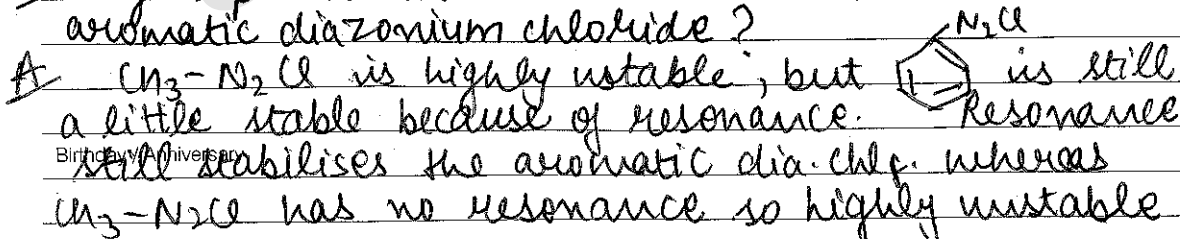 aromatic diazonium chloride ?
A CH3-N2Cl is highly ustable, but N2Cl is still
a little stable because of resonance. Resonance
Birthday/Anniversary
still stabilises the aromatic dia. chlr. whereas
CH3-N2Cl has no resonance so highly unstable